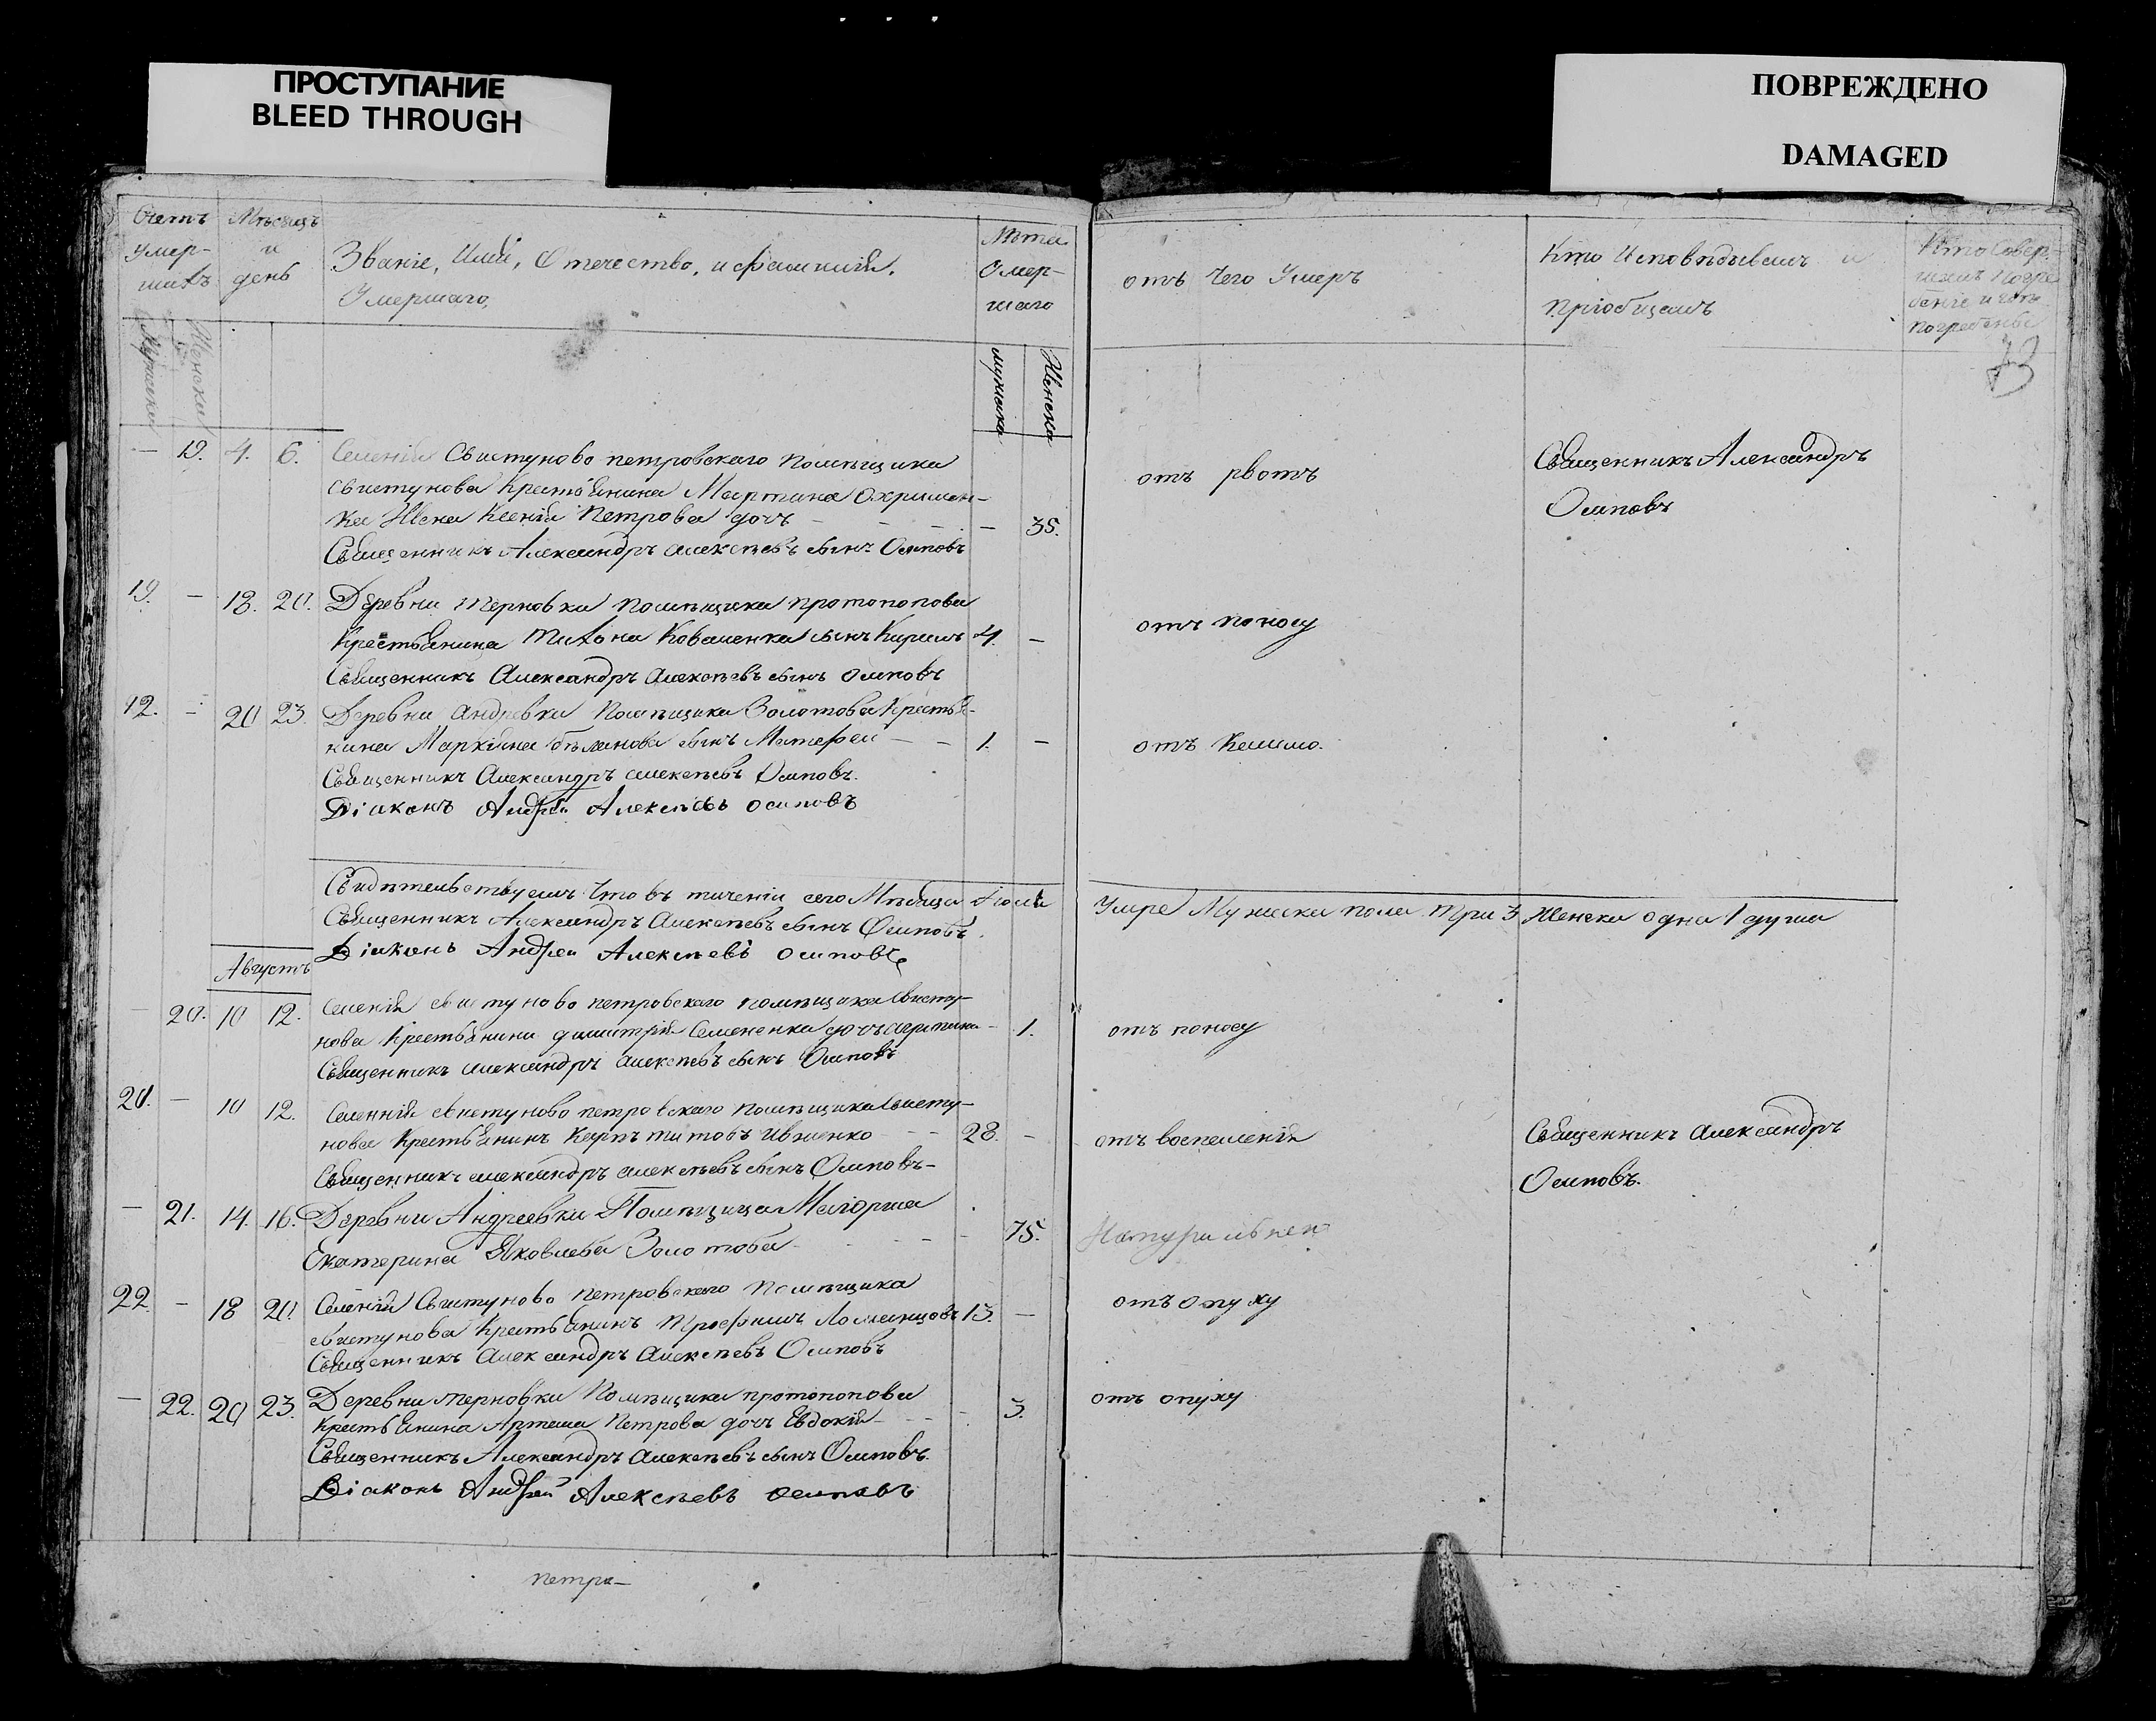 ПРОСТУПАНИЕ
BLEED THROUGH
ПОВРЕЖДЕНО
DAMAGED
Счетъ умер-шихъ
Мѣсяцъ и день
Званіе, Имя, Отечество, и фамилія,
Умершаго,
Лѣта Умер-шаго
отъ чего Умеръ
Кто Исповѣдывалъ и
пріобщалъ
Кто Совер-
шалъ Погре
беніе и гдѣ
погребены
Мужески
Женски
мужска
Женска
73
— 19. 4. 6. Селенія Свистуново петровскаго помѣщика
свистунова крестьянина Мартина Охримен-
ка Жена Ксенія Петрова дочь — 35.
отъ рвотъ
Священникъ Александръ
Осиповъ
Священникъ Александръ алексѣевъ сынъ Осиповъ
19. — 18. 20. Деревни терновки помѣщика протопопова
крестьянина тихона Коваленка сынъ Кирилъ 4. —
отъ поносу
Священникъ Александръ алексѣевъ сынъ осиповъ
20 23. Деревни андревки помѣщика Золотова крестья-
нина Маркіяна бѣланова сынъ Матфеи — 1. —
отъ кашлю.
Священникъ Александръ алексѣевъ Осиповъ.
Діаконъ Андрей Алексѣевъ осиповъ
Свидѣтельствуемъ что въ теченіи сего Мѣсяца Іюля
Умре Мужеска пола три 3 Женска одна 1 душа
Священникъ Александръ Алексѣевъ сынъ Осиповъ.
Діаконъ Андреи Алексѣевъ осиповъ
Августъ
— 20. 10 12. Селенія свистуново петровскаго помѣщика Свисту-
нова крестьянина димитрія Семененка дочь агрипина — 1.
отъ поносу
Священникъ александръ алексѣевъ сынъ Осиповъ
— 10 12. Селенія свистуново петровскаго помѣщика Свисту-
нова крестьянинъ Карпъ титовъ Ивженко — 28. —
отъ воспаленія
Священникъ александръ
Осиповъ.
Священникъ александръ алексѣевъ сынъ Осиповъ-
— 21. 14. 16. Деревни Андреевки Помѣщица Маіорша
Екатерина Яковлева Золотова — 75.
Натурально
22 — 18 20. Селенія Свистуново петровскаго Помѣщика
свистунова крестьянинъ трофимъ 13. —
отъ опуху
Священникъ Александръ алексѣевъ Осиповъ
— 22. 20 23. Деревни терновки Помѣщика протопопова
крестьянина Артема Петрова дочь Евдокія — 3.
отъ опуху
Священникъ Александръ алексѣевъ сынъ Осиповъ.
Діаконъ Андрей Алексѣевъ осиповъ
петра-